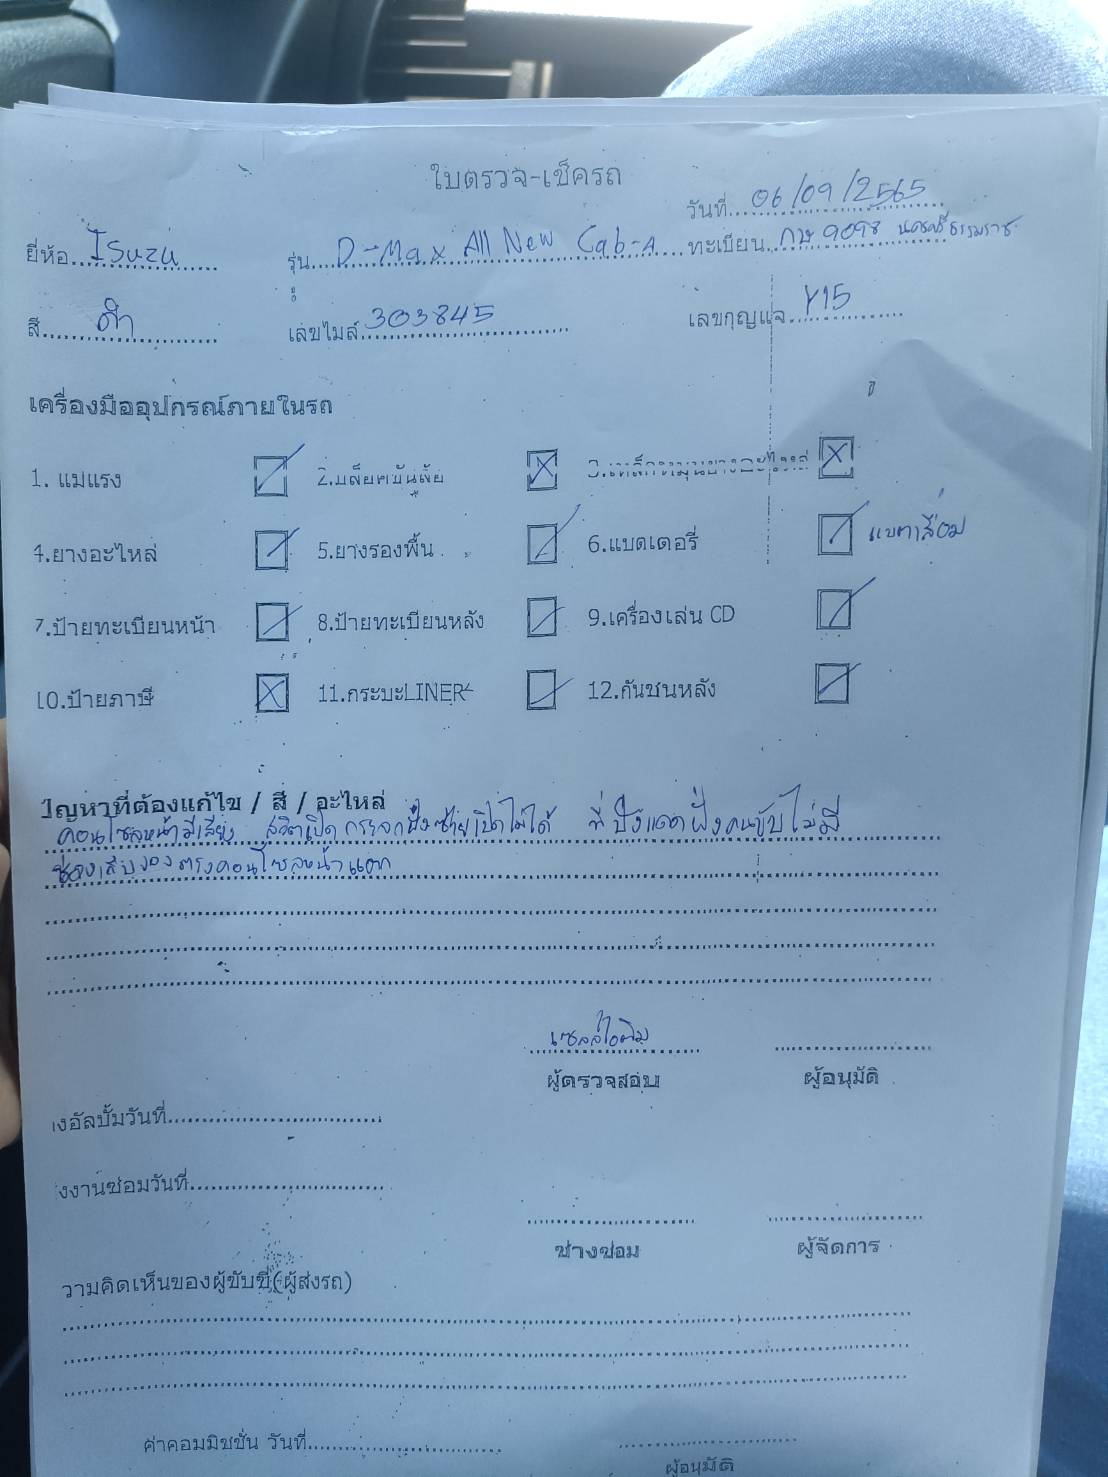 ใบตรวจ-เช็ครถ
วันที่ 06/09/2565
ยี่ห้อ Isuzu รุ่น D-Max All New Cab-A ทะเบียน กษ 9098 นครศรีธรรมราช
สี ดำ เลขไมล์ 303845 เลขกุญแจ Y15
เครื่องมืออุปกรณ์ภายในรถ
1. แม่แรง 2.บล็อคขันล้อ 3.เหล็กหมุนยางอะไหล่
4.ยางอะไหล่ 5.ยางรองพื้น 6.แบตเตอรี่ แบตเสื่อม
7.ป้ายทะเบียนหน้า 8.ป้ายทะเบียนหลัง 9.เครื่องเล่น CD
10.ป้ายภาษี 11.กระบะLINER 12.กันชนหลัง
ปัญหาที่ต้องแก้ไข / สี / อะไหล่
คอนโซลหน้ามีเสียง สวิตเปิดกระจกฝั่งซ้ายเปิดไม่ได้ ที่บังแดดฝั่งคนขับไม่มี
ช่องเก็บของตรงคอนโซลหน้าแตก
เซลล์ไอติม
ผู้ตรวจสอบ ผู้อนุมัติ
งอัลบั้มวันที่
งงานซ่อมวันที่
ช่างซ่อม ผู้จัดการ
วามคิดเห็นของผู้ขับขี่(ผู้ส่งรถ)
ค่าคอมมิชชั่น วันที่
ผู้อนุมัติ